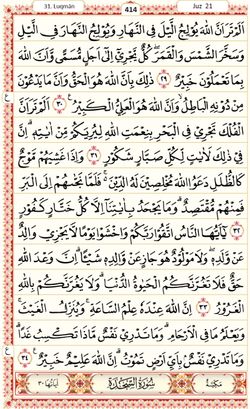 31. Luqmān 414 Juz 21
اَلَمْ تَرَ اَنَّ اللّٰهَ يُوْلِجُ الَّيْلَ فِي النَّهَارِ وَيُوْلِجُ النَّهَارَ فِي الَّيْلِ
وَسَخَّرَ الشَّمْسَ وَالْقَمَرَ كُلٌّ يَّجْرِيْٓ اِلٰٓى اَجَلٍ مُّسَمًّى وَّاَنَّ اللّٰهَ
بِمَا تَعْمَلُوْنَ خَبِيْرٌ ٢٩ ذٰلِكَ بِاَنَّ اللّٰهَ هُوَ الْحَقُّ وَاَنَّ مَا يَدْعُوْنَ
مِنْ دُوْنِهِ الْبَاطِلُ وَاَنَّ اللّٰهَ هُوَ الْعَلِيُّ الْكَبِيْرُ ٣٠ اَلَمْ تَرَ اَنَّ
الْفُلْكَ تَجْرِيْ فِي الْبَحْرِ بِنِعْمَتِ اللّٰهِ لِيُرِيَكُمْ مِّنْ اٰيٰتِهٖ اِنَّ
فِيْ ذٰلِكَ لَاٰيٰتٍ لِّكُلِّ صَبَّارٍ شَكُوْرٍ ٣١ وَاِذَا غَشِيَهُمْ مَّوْجٌ
كَالظُّلَلِ دَعَوُا اللّٰهَ مُخْلِصِيْنَ لَهُ الدِّيْنَ فَلَمَّا نَجّٰىهُمْ اِلَى الْبَرِّ
فَمِنْهُمْ مُّقْتَصِدٌ وَمَا يَجْحَدُ بِاٰيٰتِنَآ اِلَّا كُلُّ خَتَّارٍ كَفُوْرٍ
٣٢ يٰٓاَيُّهَا النَّاسُ اتَّقُوْا رَبَّكُمْ وَاخْشَوْا يَوْمًا لَّا يَجْزِيْ وَالِدٌ
عَنْ وَّلَدِهٖ وَلَا مَوْلُوْدٌ هُوَ جَازٍ عَنْ وَّالِدِهٖ شَيْـًٔا اِنَّ وَعْدَ اللّٰهِ
حَقٌّ فَلَا تَغُرَّنَّكُمُ الْحَيٰوةُ الدُّنْيَا وَلَا يَغُرَّنَّكُمْ بِاللّٰهِ
الْغَرُوْرُ ٣٣ اِنَّ اللّٰهَ عِنْدَهٗ عِلْمُ السَّاعَةِ وَيُنَزِّلُ الْغَيْثَ
وَيَعْلَمُ مَا فِي الْاَرْحَامِ وَمَا تَدْرِيْ نَفْسٌ مَّاذَا تَكْسِبُ غَدًا
وَمَا تَدْرِيْ نَفْسٌ بِاَيِّ اَرْضٍ تَمُوْتُ اِنَّ اللّٰهَ عَلِيْمٌ خَبِيْرٌ ٣٤
مَكِّيَّة سُوْرَةُ السَّجْدَةِ اٰيَاتُهَا ٣٠